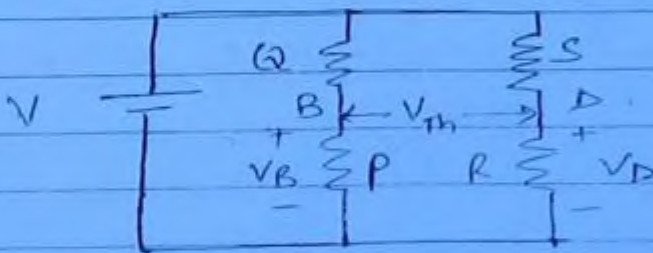 Q S
V B V_Th D
+ +
V_B P R V_D
- -